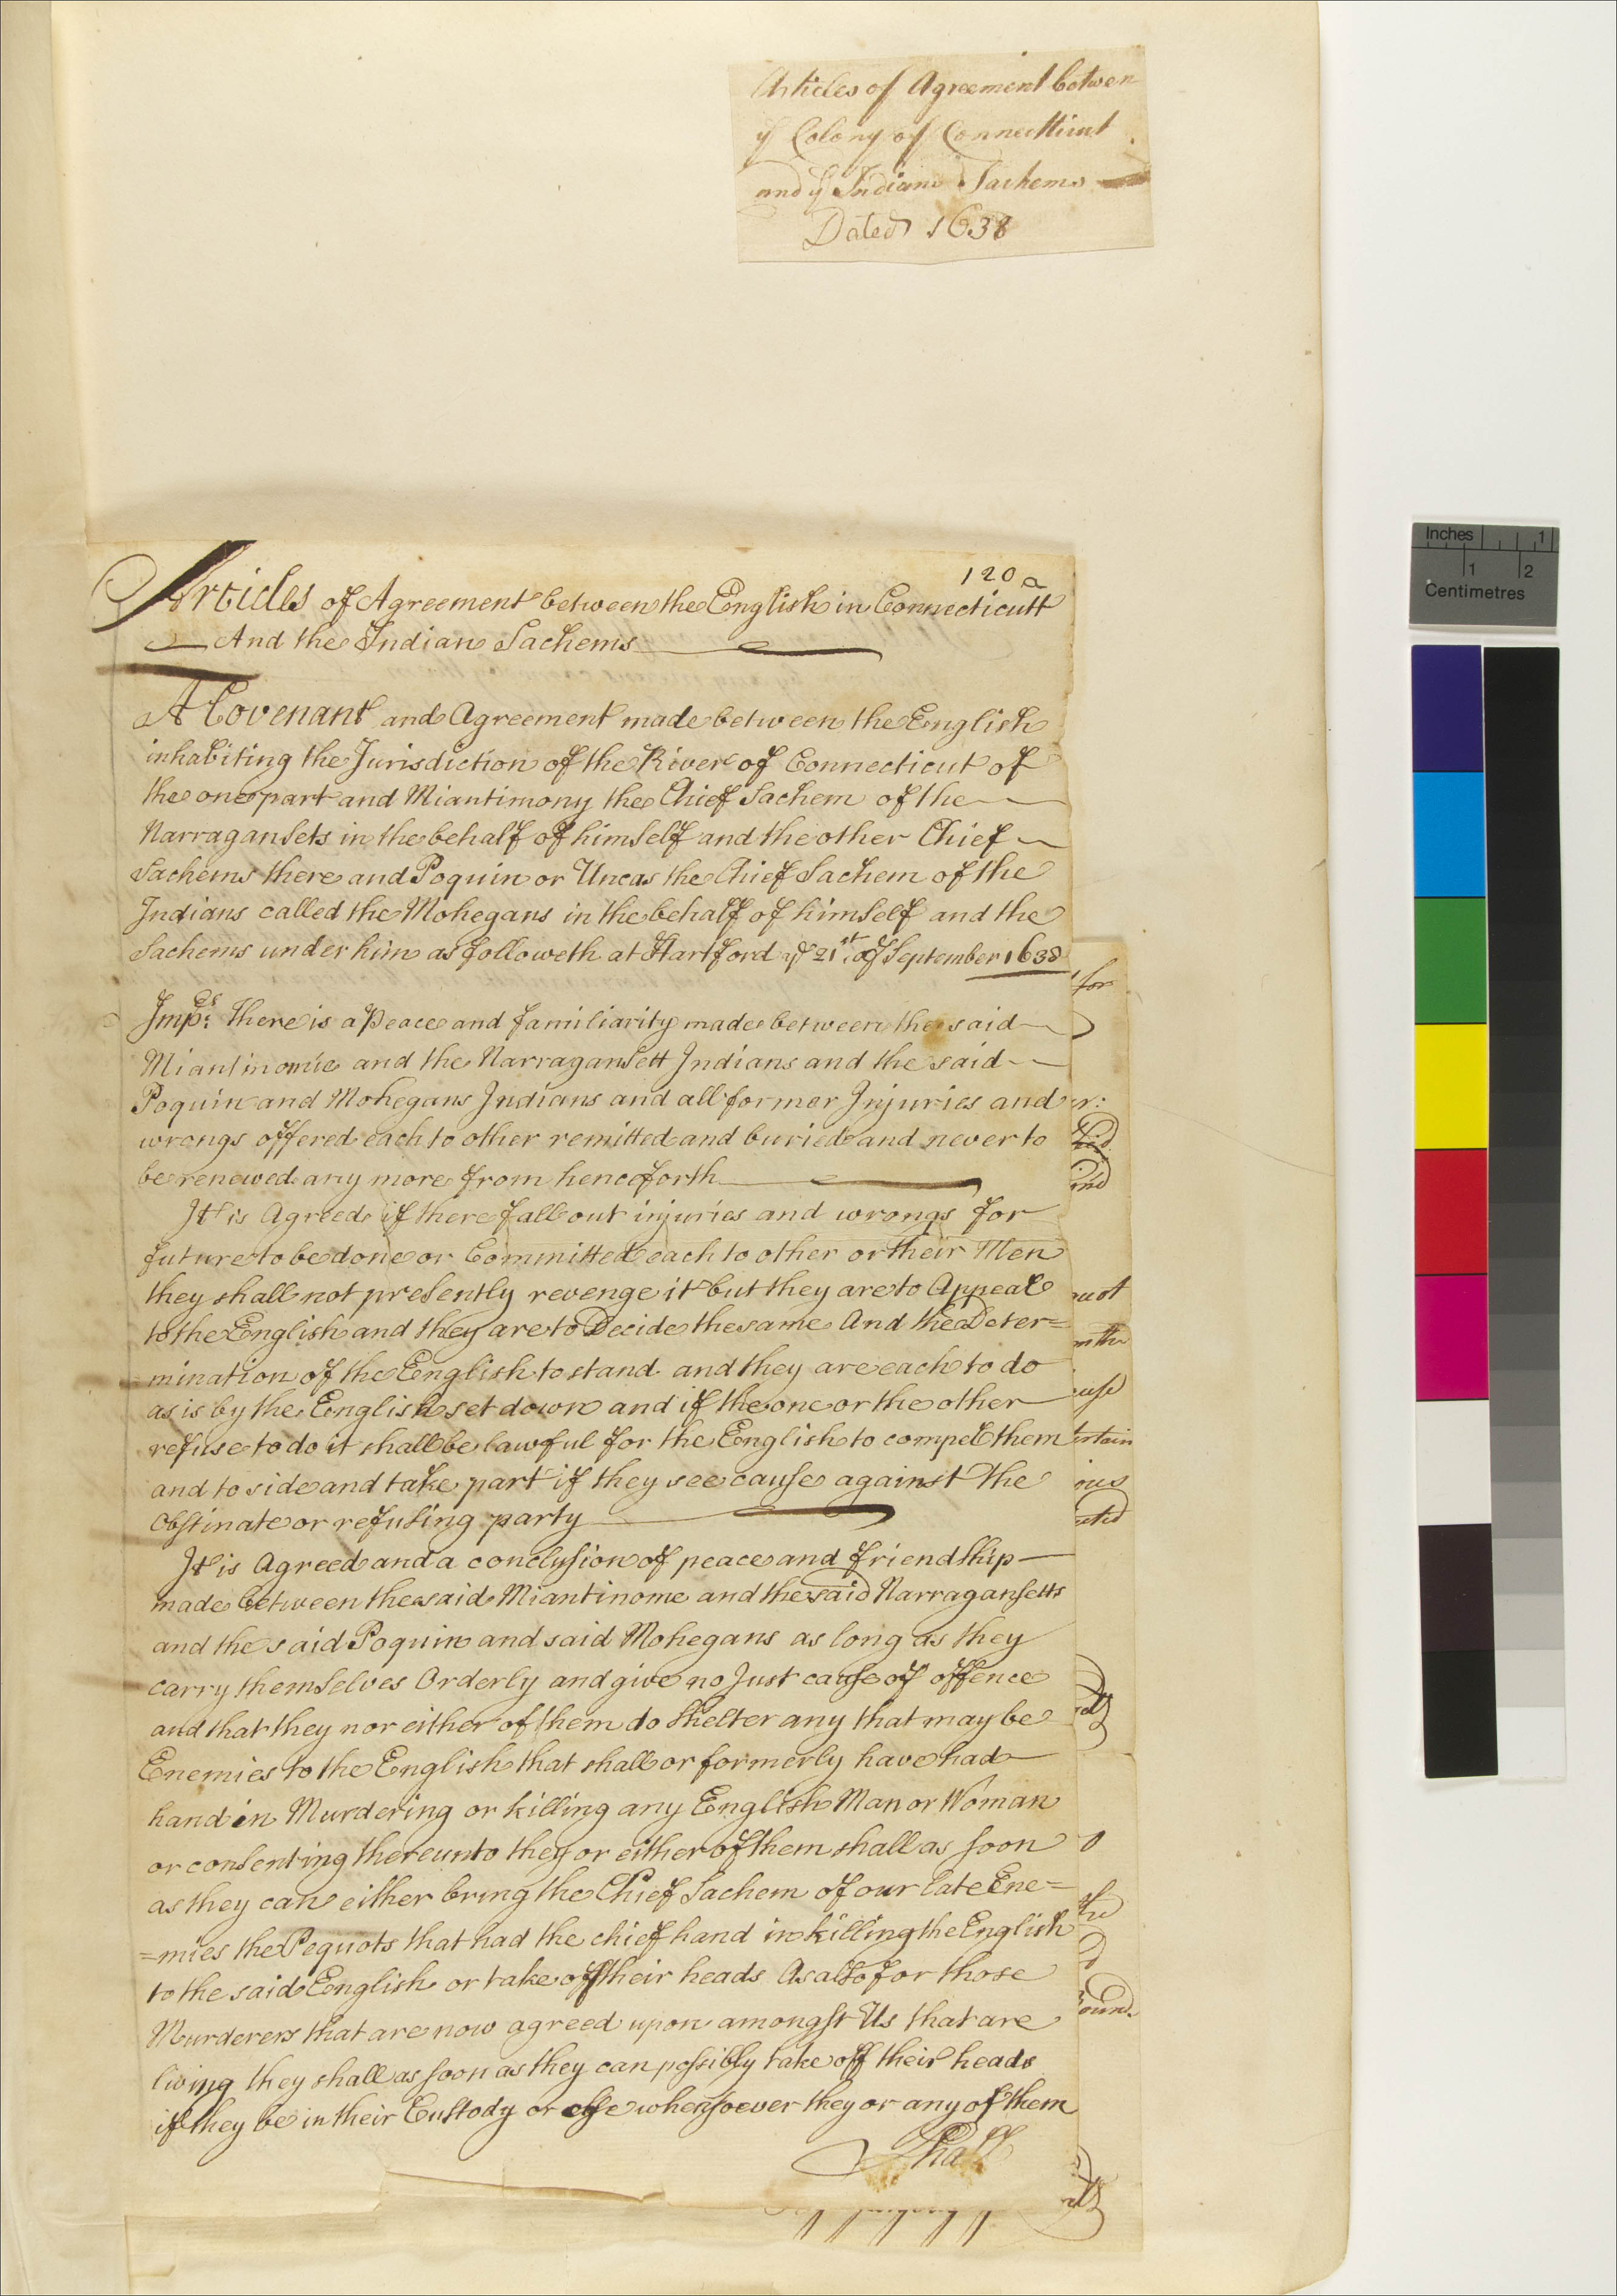 Articles of Agreement betwen
yͤ Colony of Connetticut
and yͤ Indians Sachems
Dated 1638
120 a
Articles of Agreement between the English in Connecticutt
And the Indian Sachems
A Covenant and Agreement made between the English
inhabiting the Jurisdiction of the River of Connecticut of
the one part and Miantimony the Chief Sachem of the
Narragansets in the behalf of himself and the other Chief
Sachems there and Poquin or Uncas the Chief Sachem of the
Indians called the Mohegans in the behalf of himself and the
Sachems under him as followeth at Hartford yͤ 21st of September 1638
Imp:rs there is a Peace and familiarity made between the said
Miantinomie and the Narragansett Indians and the said
Poquin and Mohegans Indians and all former Injuries and
wrongs offered each to other remitted and buried and never to
be renewed any more from henceforth
It is Agreed if there fall out injuries and wrongs for
future to be done or Committed each to other or their Men
they shall not presently revenge it but they are to Appeal
to the English and they are to Decide the same And the Deter=
mination of the English to stand and they are each to do
as is by the English set down and if the one or the other
refuse to do it shall be lawful for the English to compel them
and to side and take part if they see cause against the
Obstinate or refusing party
It is Agreed and a conclusion of peace and friendship
made between the said Miantinome and the said Narragansetts
and the said Poquin and said Mohegans as long as they
carry themselves Orderly and give no Just cause of offence
and that they nor either of them do shelter any that may be
Enemies to the English that shall or formerly have had
hand in Murdering or killing any English Man or Woman
or consenting thereunto they or either of them shall as soon
as they can either bring the Chief Sachem of our late Ene=
=mies the Pequots that had the chief hand in killing the English
to the said English or take off their heads As also for those
Murderers that are now agreed upon amongst Us that are
living they shall as soon as they can possibly take off their heads
if they be in their Custody or else whensoever they or any of them
Shall
for
Inches 1
1 2
Centimetres